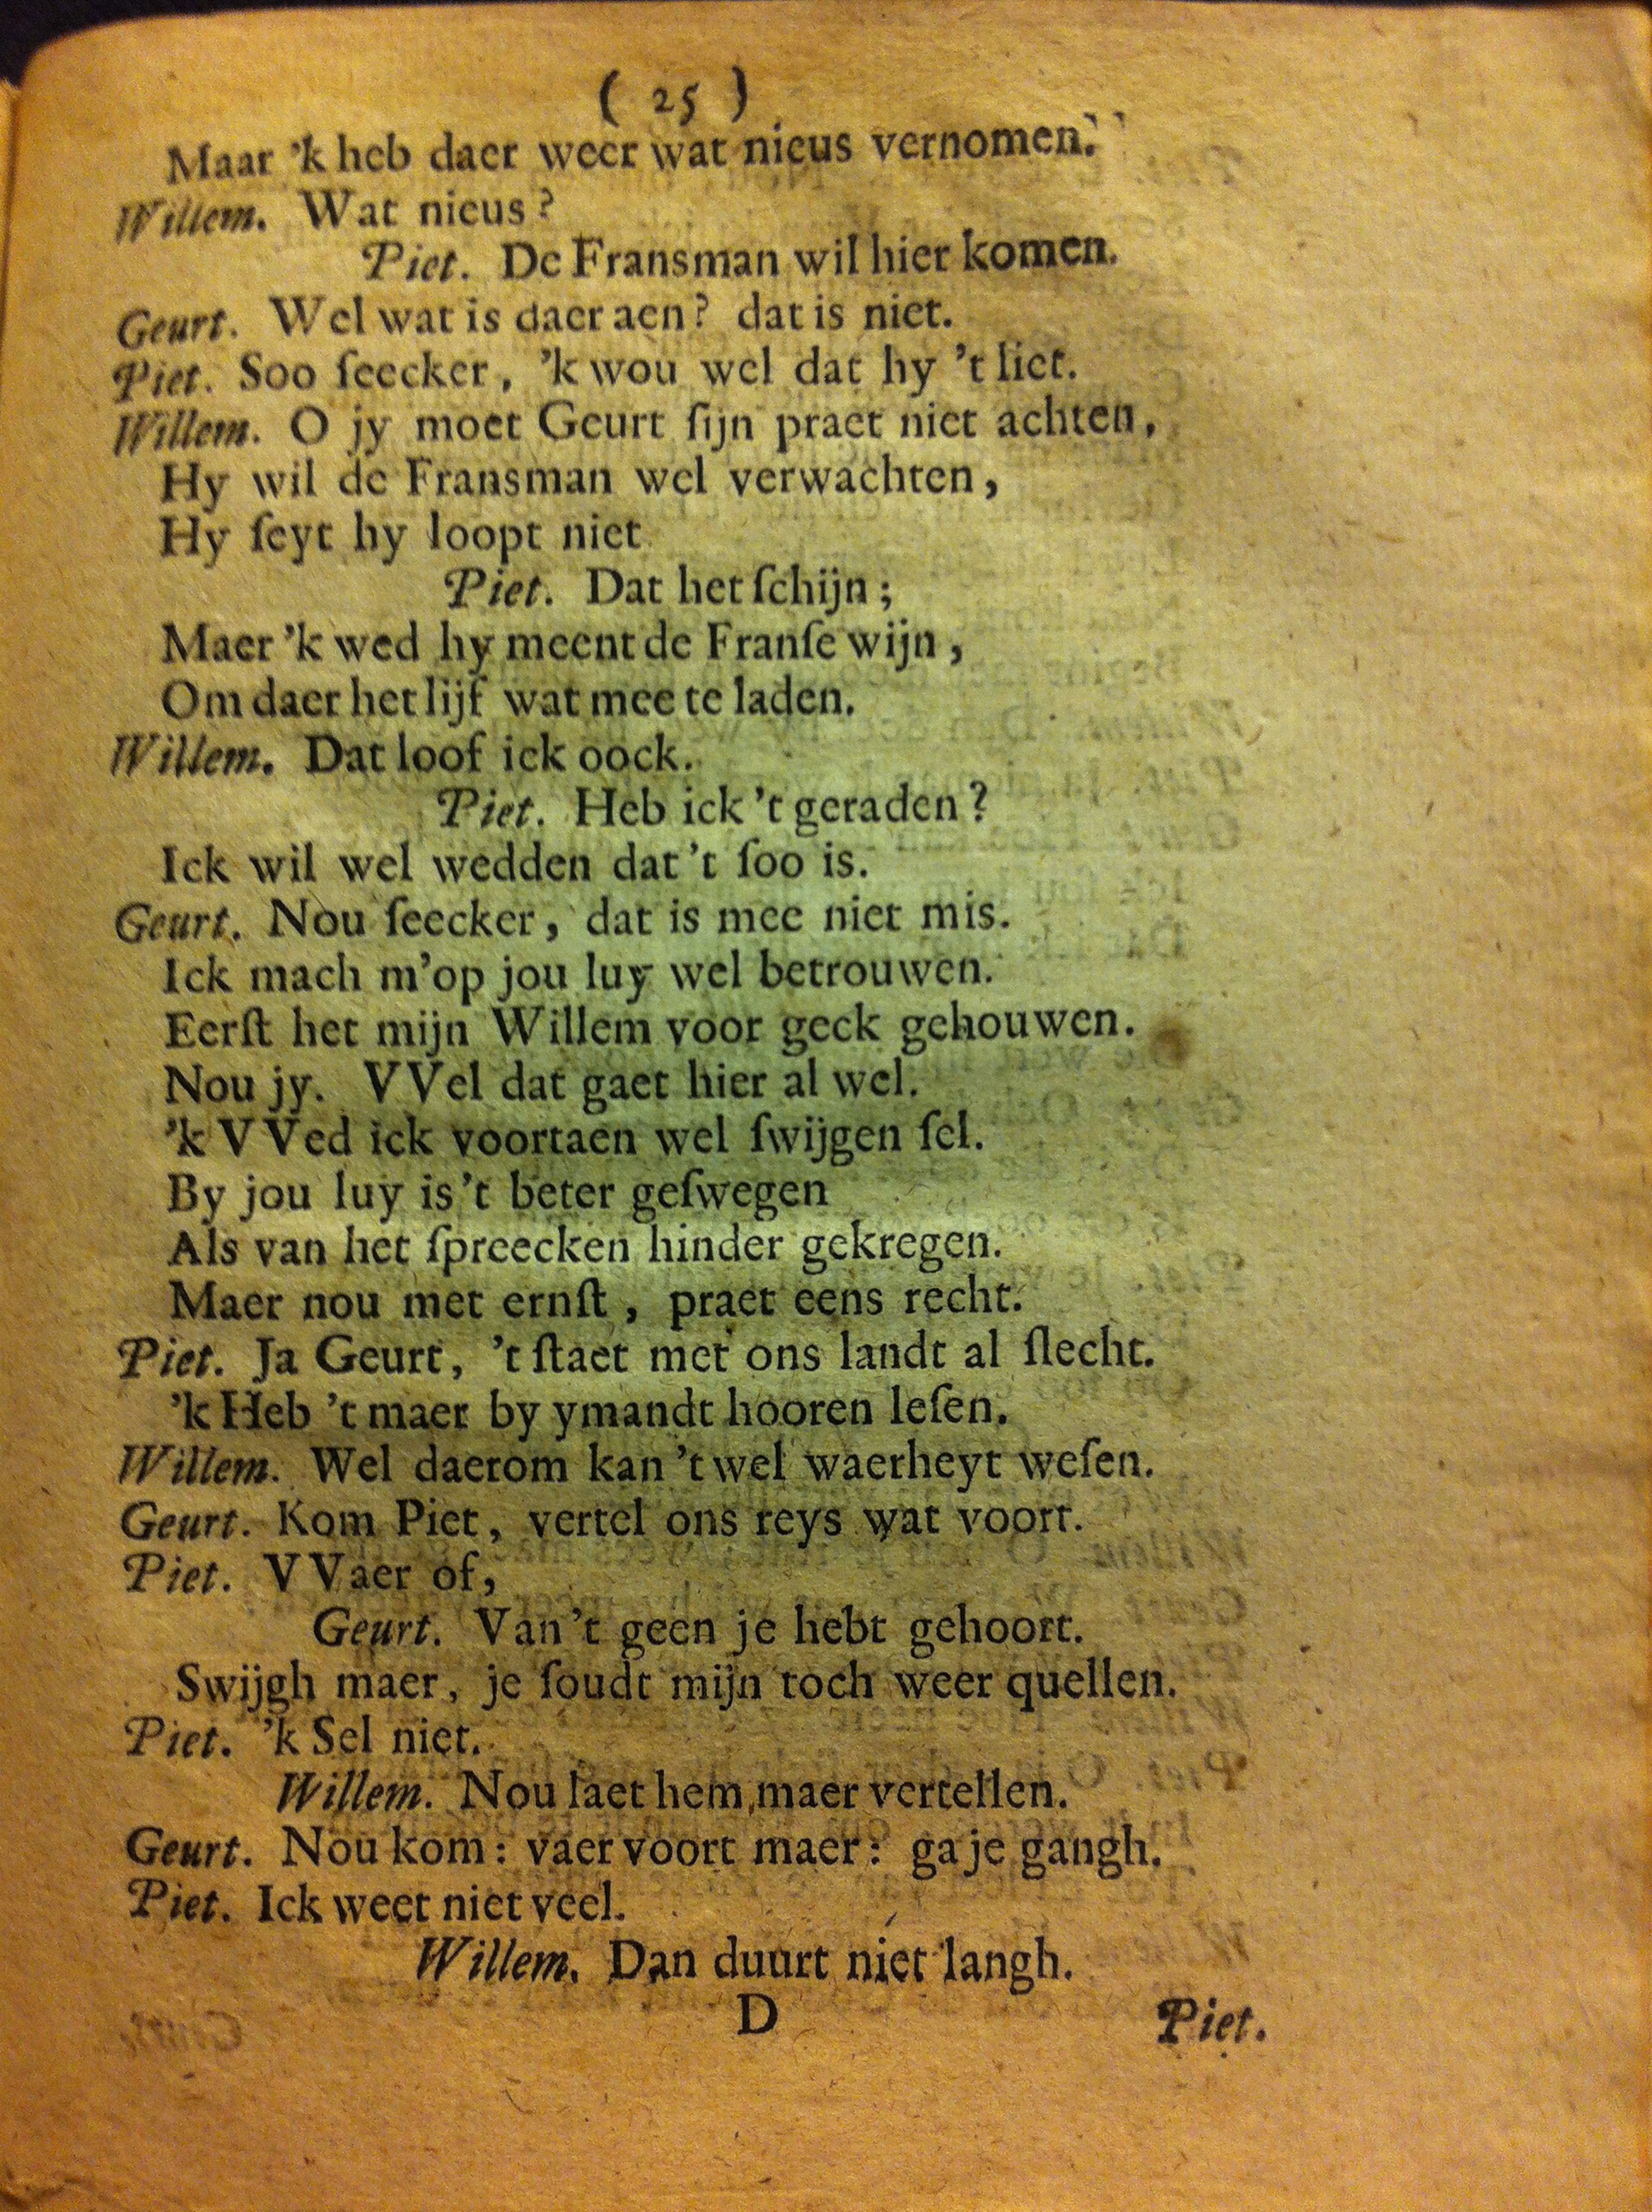 ( 25 )
Maar 'k heb daer weer wat nieus vernomen.
Willem. Wat nieus?
Piet. De Fransman wil hier komen.
Geurt. Wel wat is daer aen? dat is niet.
Piet. Soo ſeecker, 'k wou wel dat hy 't liet.
Willem. O jy moet Geurt ſijn praet niet achten,
Hy wil de Fransman wel verwachten,
Hy ſeyt hy loopt niet
Piet. Dat het ſchijn;
Maer 'k wed hy meent de Franſe wijn,
Om daer het lijf wat mee te laden.
Willem. Dat loof ick oock.
Piet. Heb ick 't geraden?
Ick wil wel wedden dat 't ſoo is.
Geurt. Nou ſeecker, dat is mee niet mis.
Ick mach m'op jou luy wel betrouwen.
Eerſt het mijn Willem voor geck gehouwen.
Nou jy. VVel dat gaet hier al wel.
'k VVed ick voortaen wel ſwijgen ſel.
By jou luy is 't beter geſwegen
Als van het ſpreecken hinder gekregen.
Maer nou met ernſt, praet eens recht.
Piet. Ja Geurt, 't ſtaet met ons landt al ſlecht.
'k Heb 't maer by ymandt hooren leſen.
Willem. Wel daerom kan 't wel waerheyt weſen.
Geurt. Kom Piet, vertel ons reys wat voort.
Piet. VVaer of,
Geurt. Van 't geen je hebt gehoort.
Swijgh maer, je ſoudt mijn toch weer quellen.
Piet. 'k Sel niet.
Willem. Nou laet hem maer vertellen.
Geurt. Nou kom: vaer voort maer: ga je gangh.
Piet. Ick weet niet veel.
Willem. Dan duurt niet langh.
D
Piet.